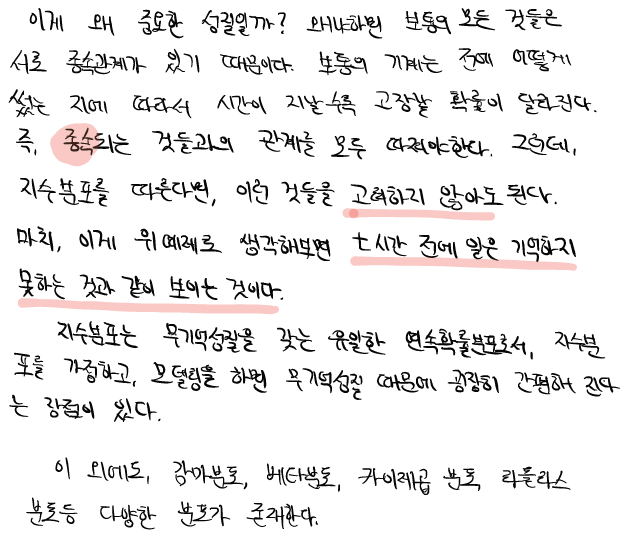 이게 왜 중요한 성질일까? 왜냐하면 보통의 모든 것들은
서로 종속관계가 있기 때문이다. 보통의 기계는 전에 어떻게
썼는 지에 따라서 시간이 지날수록 고장날 확률이 달라진다.
즉, 종속되는 것들과의 관계를 모두 따져야한다. 그런데,
지수분포를 따른다면, 이런 것들을 고려하지 않아도 된다.
마치, 이게 위 예제로 생각해보면 t시간 전에 일은 기억하지
못하는 것과 같이 보이는 것이다.
지수분포는 무기억성질을 갖는 유일한 연속확률분포로서, 지수분
포를 가정하고, 모델링을 하면 무기억성질 때문에 굉장히 간편해 진다
는 장점이 있다.
이 외에도, 감마분포, 베타분포, 카이제곱 분포, 라플라스
분포등 다양한 분포가 존재한다.